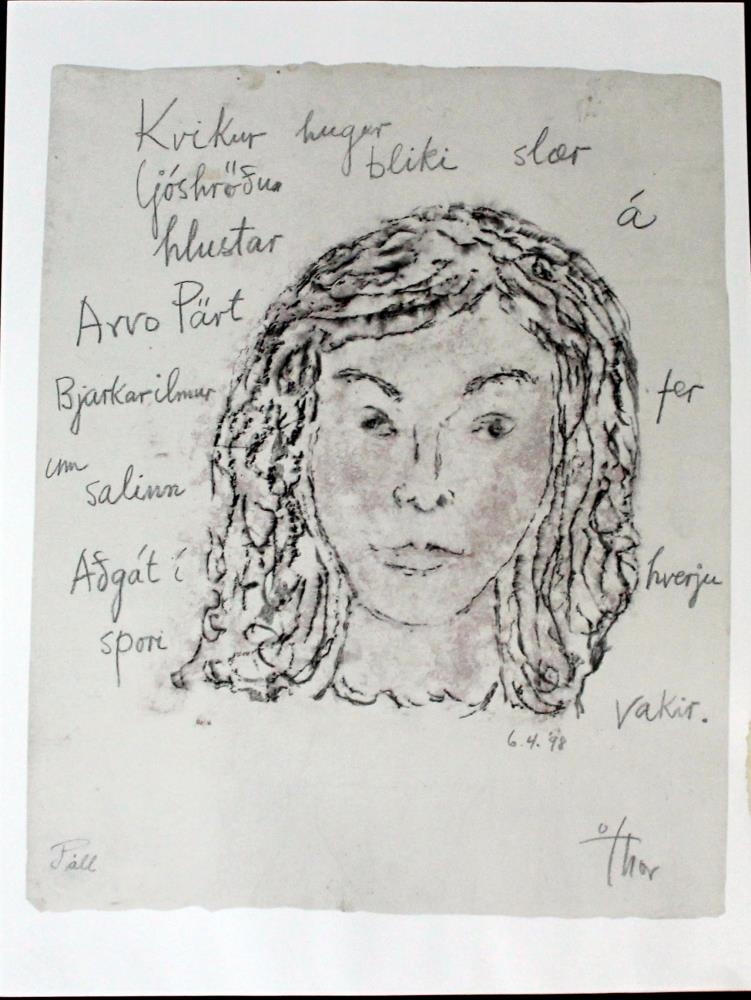 Kvikur hugur bliki slær á
ljóshröðu
hlustar
Arvo Pärt
Bjarkarilmur fer
um salinn
Aðgát í hverju
spori vakir.
6.4.'98
Páll Thor